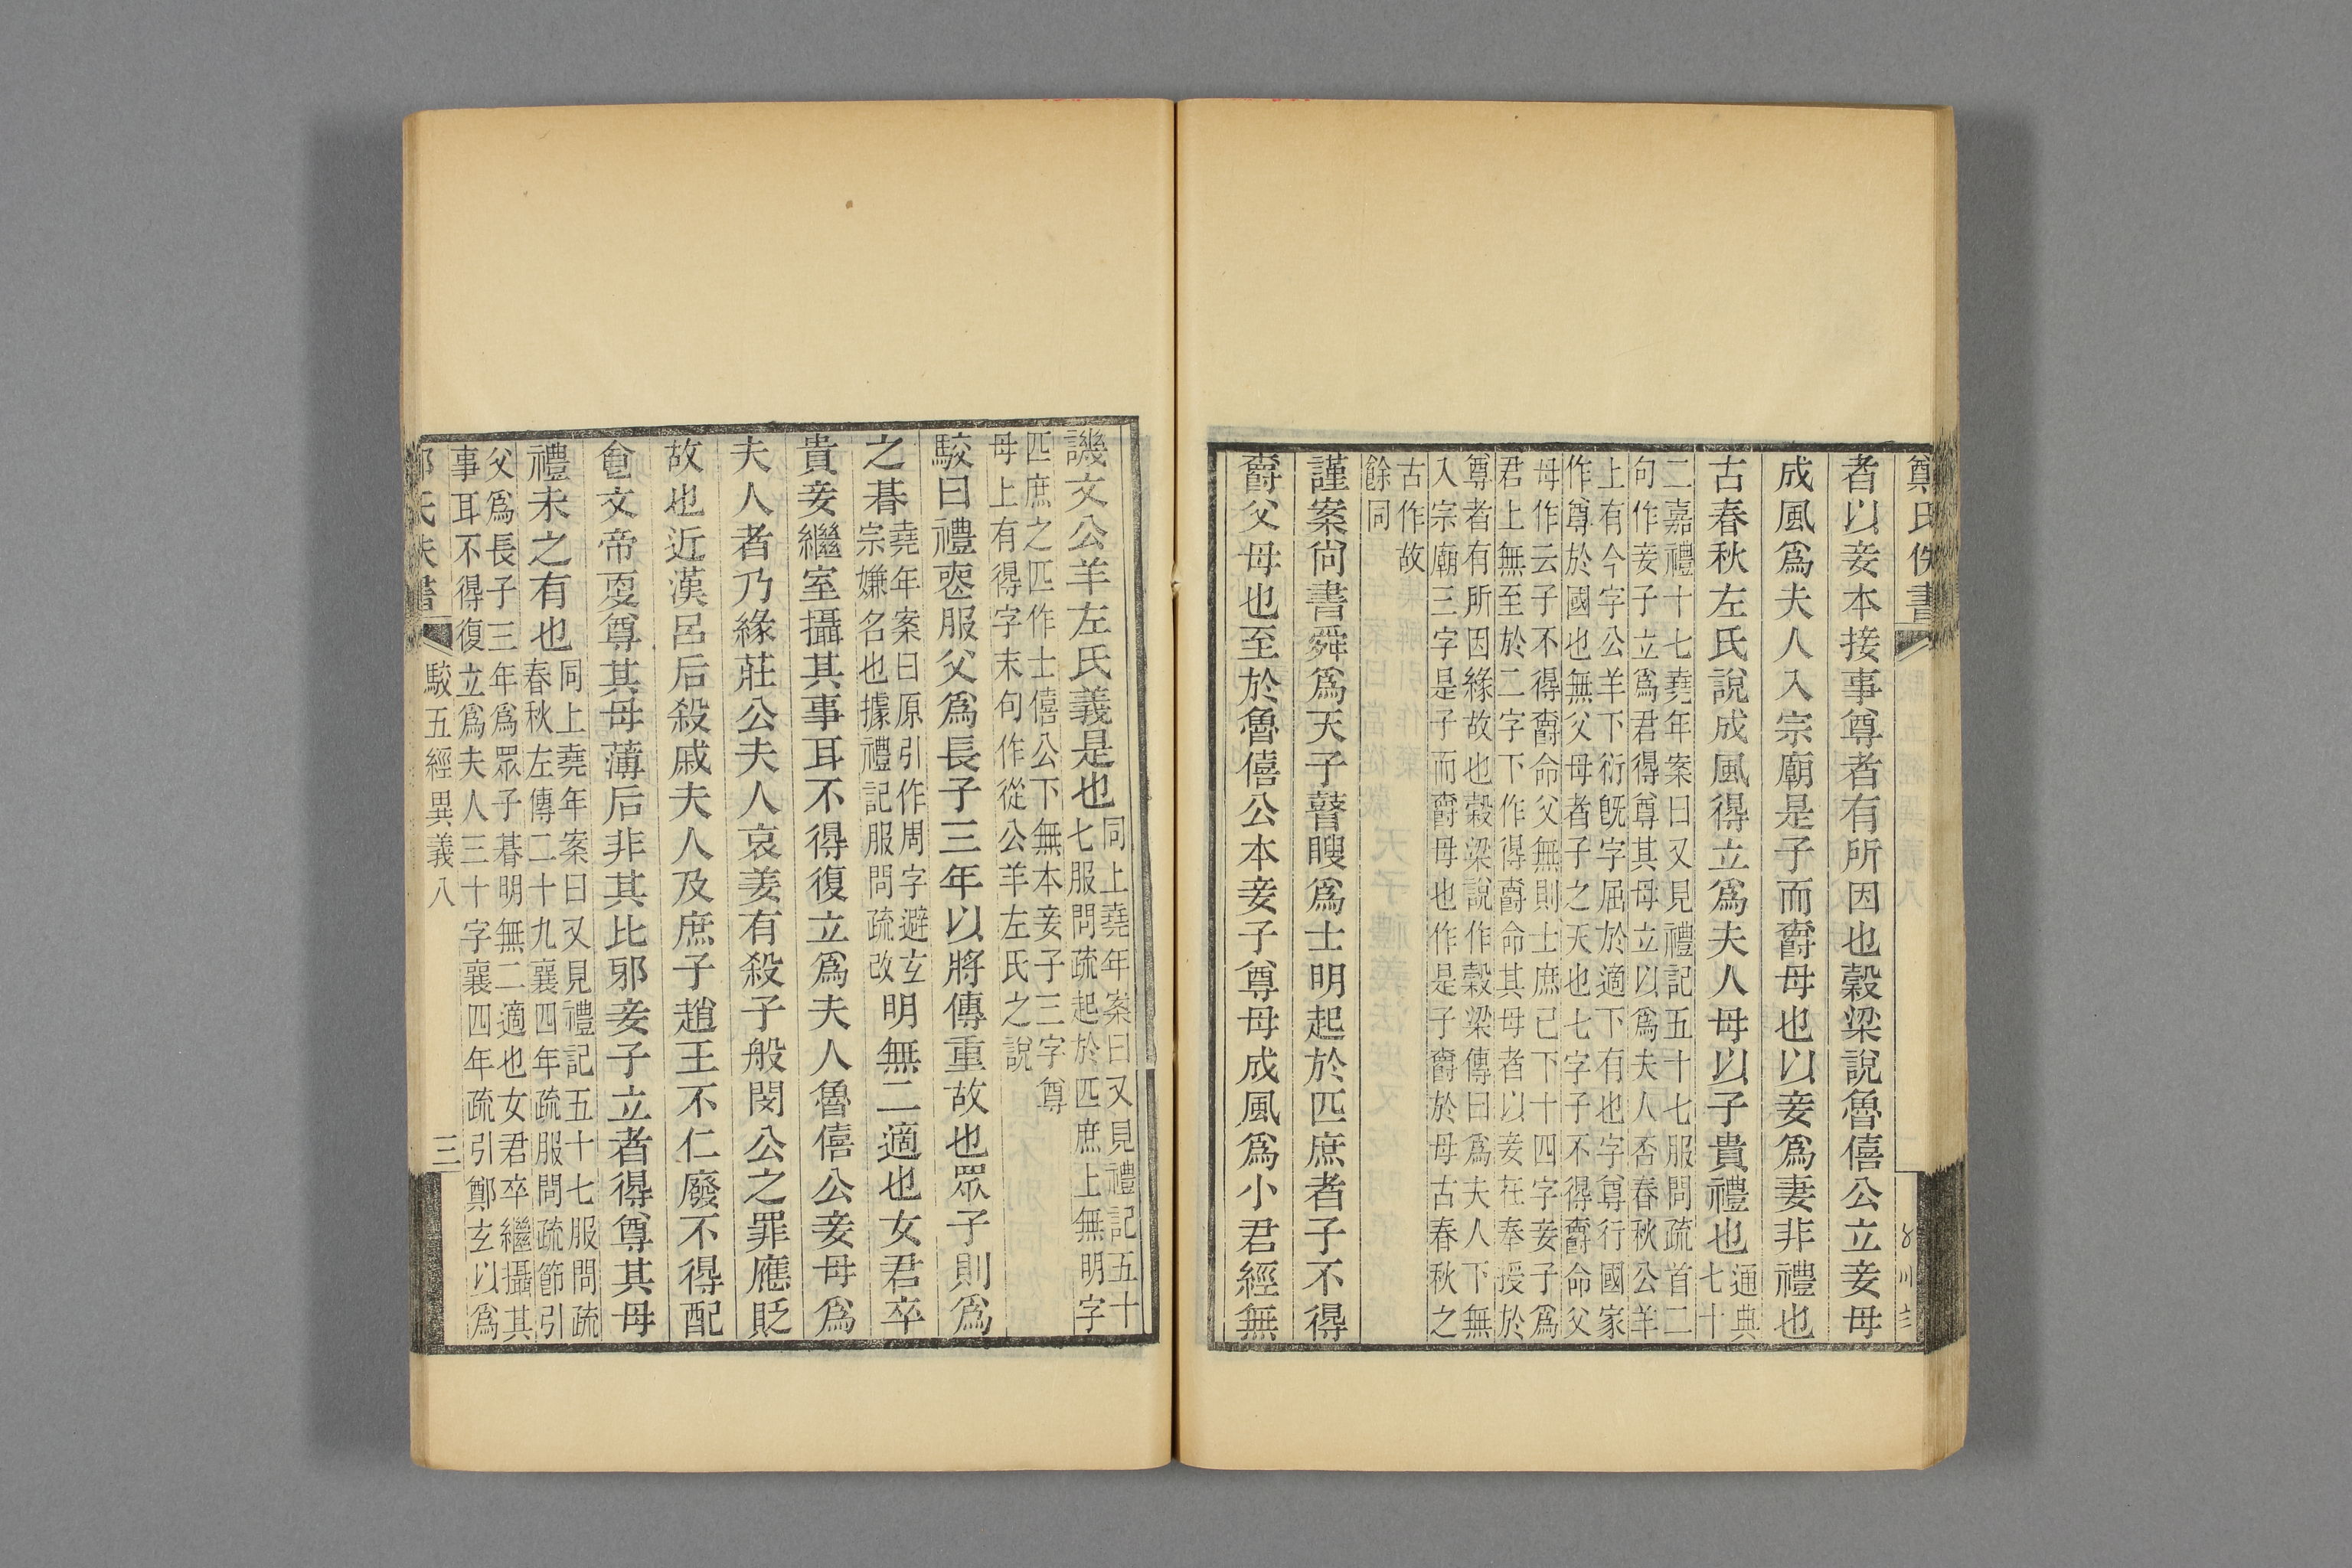 鄭氏佚書
者以妾本接事尊者有所因也穀梁說魯僖公立妾母
成風爲夫人入宗廟是子而爵母也以妾爲妻非禮也
古春秋左氏說成風得立爲夫人母以子貴禮也通典
七十
二嘉禮十七堯年案曰又見禮記五十七服問疏首二
句作妾子立爲君得尊其母立以爲夫人否春秋公羊
上有今字公羊下衍旣字屈於適下有也字尊行國家
作尊於國也無父母者子之天也七字子不得爵命父
母作云子不得爵命父無則士庶已下十四字妾子爲
君上無至於二字下作得爵命其母者以妾在奉授於
尊者有所因緣故也穀梁說作穀梁傳曰爲夫人下無
入宗廟三字是子而爵母也作是子爵於母古春秋之
古作故
餘同
謹案尙書舜爲天子瞽瞍爲士明起於匹庶者子不得
爵父母也至於魯僖公本妾子尊母成風爲小君經無
譏文公羊左氏義是也同上堯年案曰又見禮記五十
七服問疏起於匹庶上無明字
匹庶之匹作士僖公下無本妾子三字尊
母上有得字末句作從公羊左氏之說
駮曰禮喪服父爲長子三年以將傳重故也眾子則爲
之朞堯年案曰原引作周字避玄
宗嫌名也據禮記服問疏改明無二適也女君卒
貴妾繼室攝其事耳不得復立爲夫人魯僖公妾母爲
夫人者乃緣莊公夫人哀姜有殺子般閔公之罪應貶
故也近漢呂后殺戚夫人及庶子趙王不仁廢不得配
食文帝更尊其母薄后非其比邪妾子立者得尊其母
禮未之有也同上堯年案曰又見禮記五十七服問疏
春秋左傳二十九襄四年疏服問疏節引
父爲長子三年爲眾子朞明無二適也女君卒繼攝其
事耳不得復立爲夫人三十字襄四年疏引鄭玄以爲
氏佚書
駮五經異義八
三